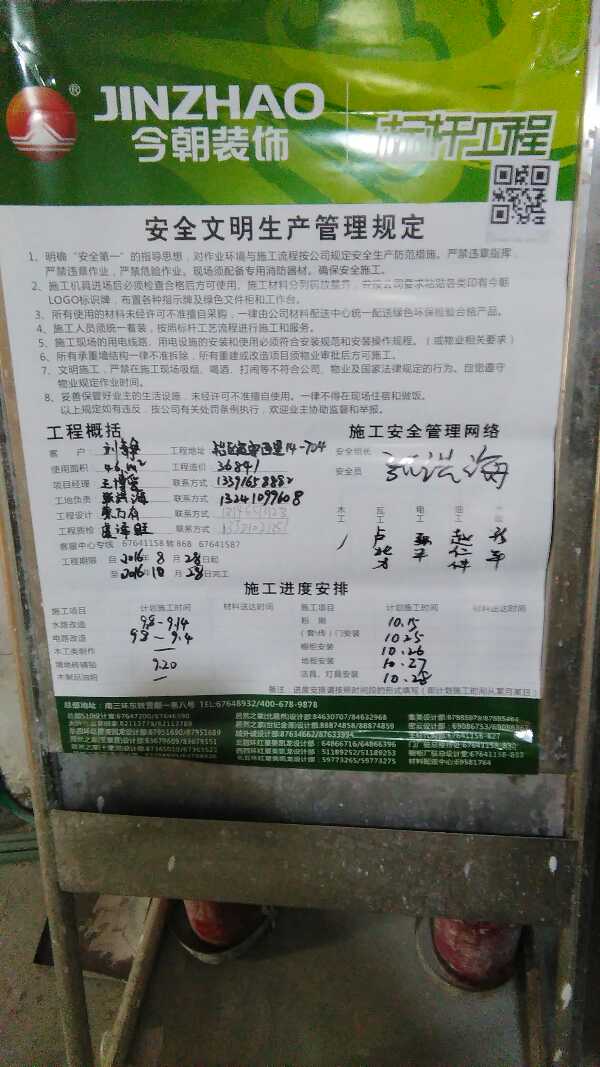 JINZHAO
今朝装饰
标杆工程
安全文明生产管理规定
1、明确“安全第一”的指导思想，对作业环境与施工流程按公司规定安全生产防范措施。严禁违章指挥，
严禁违章作业，严禁危险作业。现场须配备专用消防器材。确保安全施工。
2、施工机具进场后必须检查合格后方可使用。施工材料分列码放整齐，并按公司要求粘贴各类印有今朝
LOGO标识牌，布置各种指示牌及绿色文件柜和工作台。
3、所有使用的材料未经许可不准擅自采购，一律由公司材料配送中心统一配送绿色环保检验合格产品。
4、施工人员须统一着装，按照标杆工艺流程进行施工和服务。
5、施工现场的用电线路、用电设施的安装和使用必须符合安装规范和安装操作规程。（或物业相关要求）
6、所有承重墙结构一律不准拆除，所有重建或改造项目须物业审批后方可施工。
7、文明施工，严禁在施工现场吸烟、喝酒、打闹等不符合公司、物业及国家法律规定的行为。自觉遵守
物业规定作业时间。
8、妥善保管好业主的生活设施，未经许可不准擅自使用。一律不得在现场住宿和做饭。
以上规定如有违反，按公司有关处罚条例执行，欢迎业主协助监督和举报。
工程概括
施工安全管理网络
客 户： 刘静 工程地址： 14-704
安全组长
使用面积： 46m² 工程造价： 36841
安全员
项目经理： 王博 联系方式： 13391658882
工地负责： 张洪海 联系方式： 13241097608
木工 瓦工 电工 油工
工程设计： 联系方式：
工程质检： 联系方式：
客服中心专线 67641158 转 868 67641587
工程期限： 自 2016 年 8 月 28 日起
至 2016 年 10 月 28 日完工
施工进度安排
施工项目 计划施工时间 材料送达时间 施工项目 计划施工时间 材料送达时间
水路改造 9.8-9.14 粉 刷 10.15
电路改造 9.8-9.4 （套\传）门安装 10.25
木工类制作 — 橱柜安装 10.26
墙地砖铺贴 9.20 地板安装 10.27
木制品油漆 — 洁具、灯具安装 10.28
备注：进度安排请按照时间段的形式填写（即计划施工时间从某月某日）
总部地址：南三环东铁营顺一条八号 TEL:67648932/400-678-9878